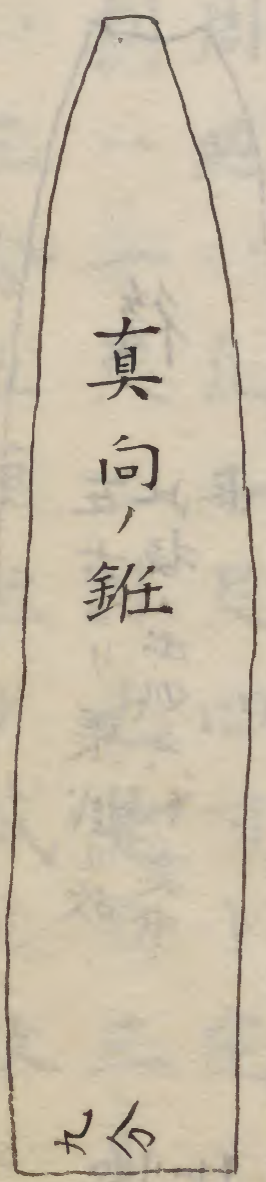 真向ノ錐
九分